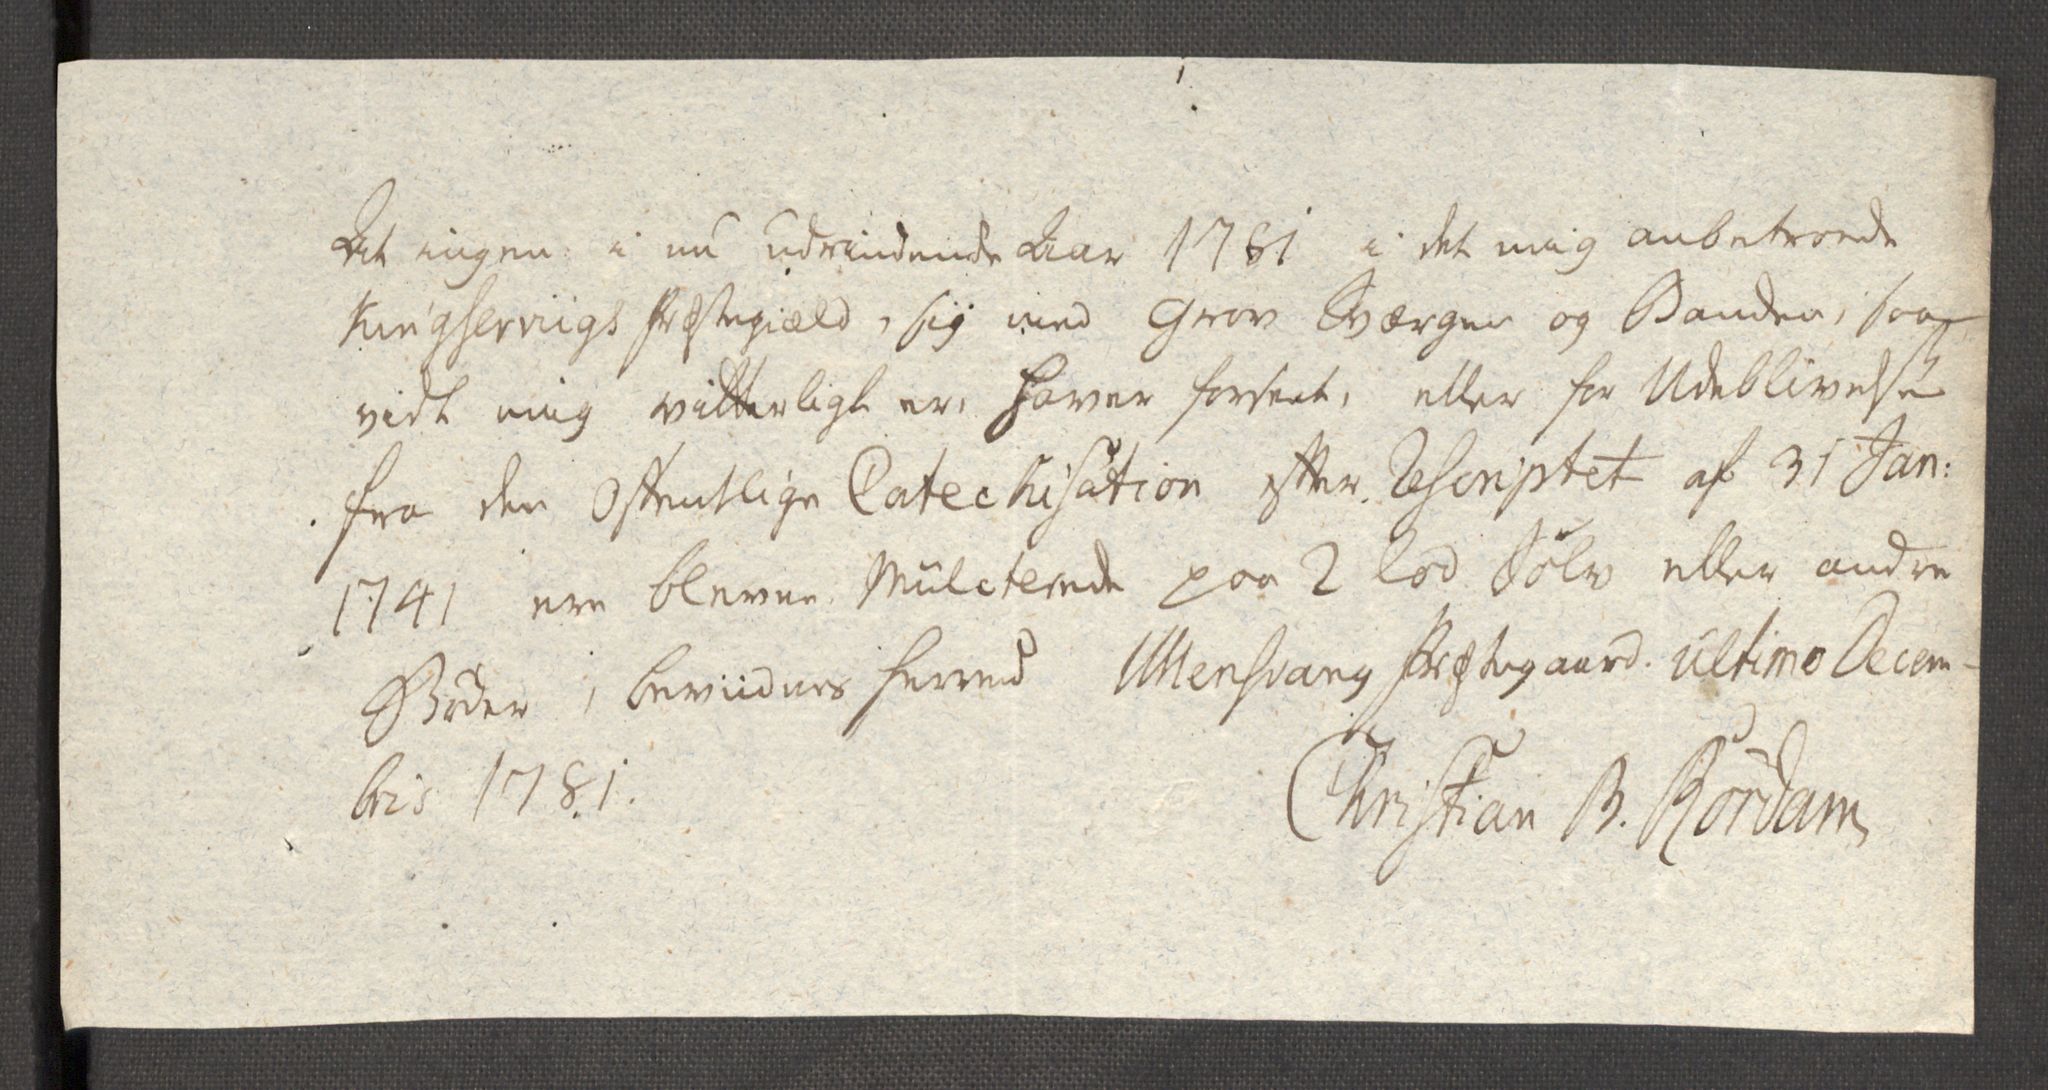 At ingen i nu udrindende Aar 1781 i det mig anbetroede
Kingservigs Præstegiæld, sig med Grov Sværgen og Banden, saa
vidt mig vitterligt er, haver forseet, eller for Udeblivelse
fra den Offentlige Catechisation efter Rescriptet af 31 Jan:
1741 ere blevne Mülcterede paa 2 Lod Sölv eller andre
Böder, bevidnes herved Ullensvang Præstegaard. ultimo Decem-
bris 1781.
Christian B. Rördam